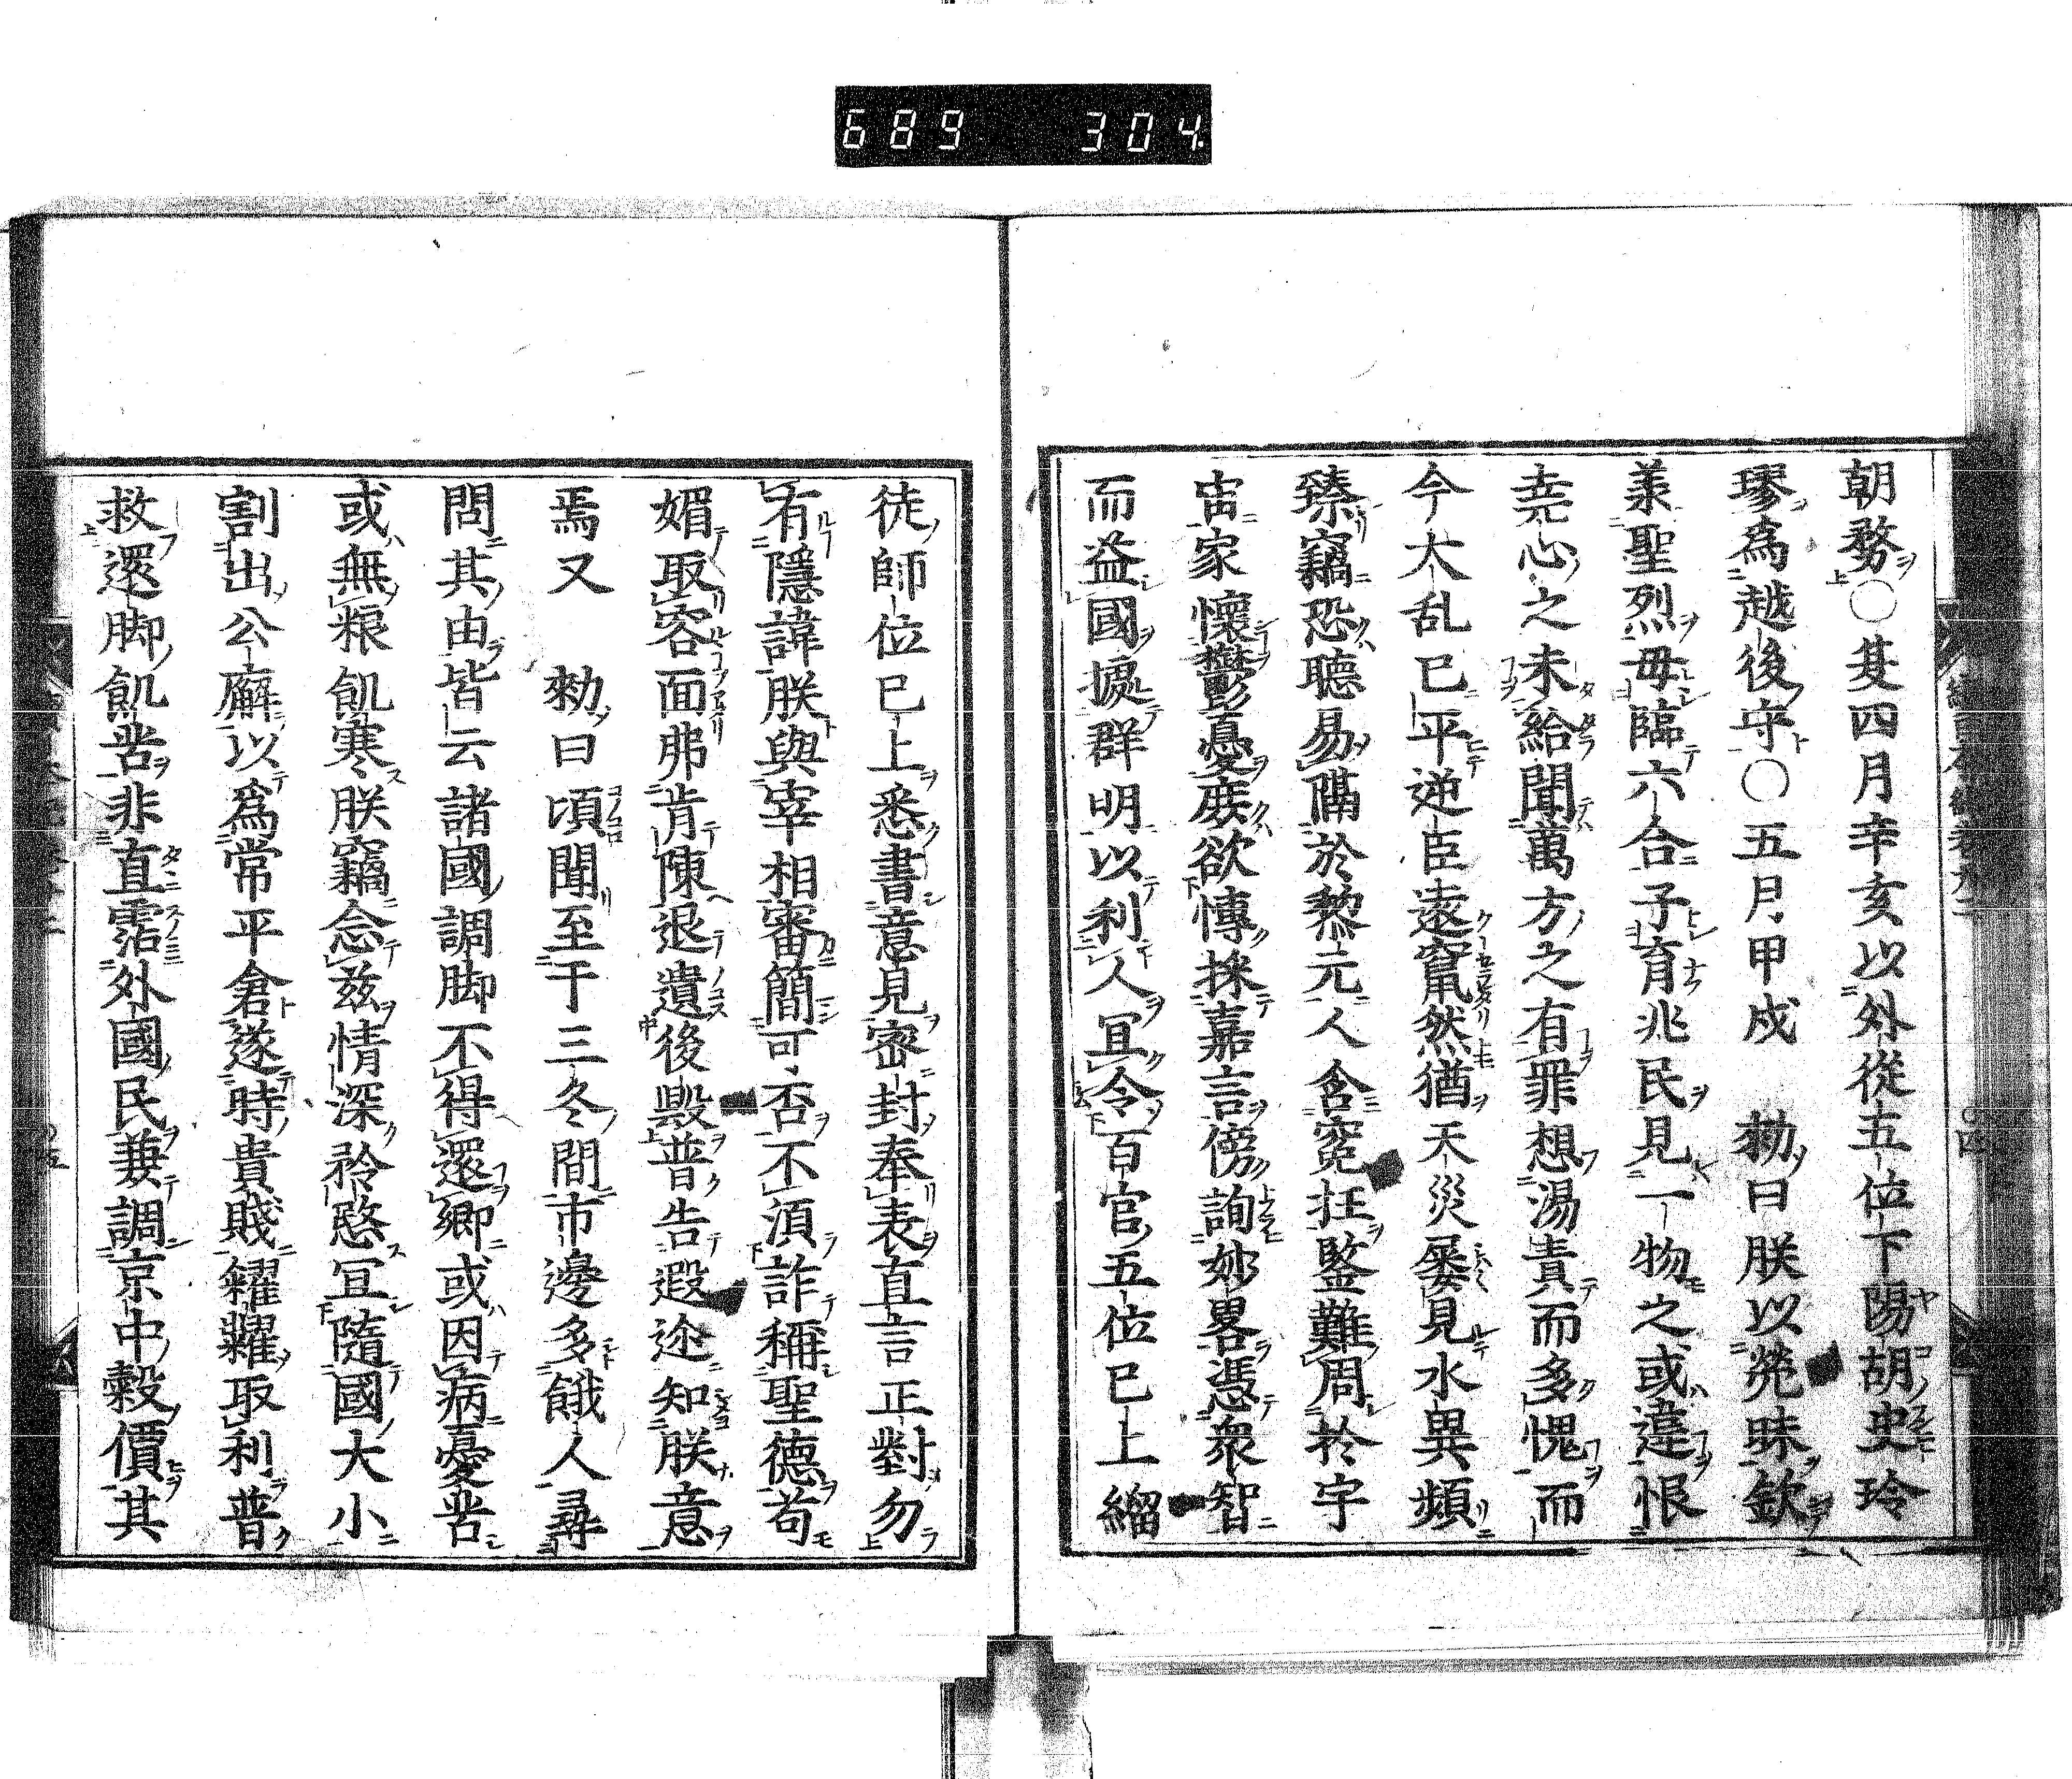 689 304
朝務○夏四月辛亥以外從五位下陽胡史玲
璆爲越後守○五月甲戌 勅曰朕以煢昧欽
羕聖烈毋臨六合子育兆民見一物之或違恨
尭心之未給聞萬方之有罪想湯責而多愧而
今大乱已平逆臣遠竄然猶天災屡見水異頻
臻竊恐聽易隔於黎元人含寃抂監難周於宇
宙家懐欝憂庻欲慱採嘉言傍詢妙畧憑衆智
而益國㨿群明以利人冝令百官五位已上緇
徒師位已上悉書意見密封奉表直言正對勿
有隱諱朕與宰相審簡可否不湏詐稱聖德苟
媚取容面弗肯陳退遺後毀普告遐迩知朕意
焉又 勅曰頃聞至于三冬間市邊多餓人尋
問其由皆云諸國調脚不得還郷或因病憂苦
或無粮飢寒朕竊念兹情深矜愍冝隨國大小
割出公廨以爲常平倉遂時貴賤糴糶取利普
救還脚飢苦非直霑外國民兼調京中穀價其